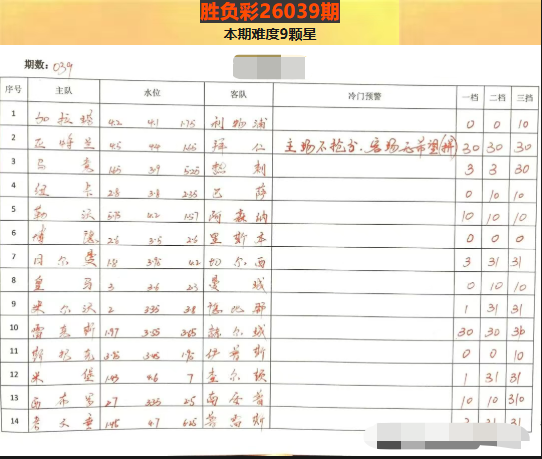 胜负彩26039期
本期难度9颗星
期数: 039
序号 主队 水位 客队 冷门预警 一档 二档 三档
1 加拉塔 4.2 4.1 1.75 利物浦 0 0 10
2 亚特兰 4.5 4.4 1.65 拜仁 主场不抢分、客场无希望(拼) 30 30 30
3 马竞 1.45 3.9 5.25 热刺 3 3 30
4 纽卡 2.8 3.8 2.35 巴萨 0 10 10
5 勒沃 5.75 4.2 1.57 阿森纳 10 10 10
6 博德 2.6 3.5 2.6 里斯本 0 0 0
7 日尔曼 1.8 3.90 4.2 切尔西 3 31 31
8 皇马 3 3.6 2.3 曼城 0 10 10
9 米尔沃 2 3.35 3.8 德比郡 1 31 31
10 雷克斯 1.97 3.55 3.65 赫尔城 30 30 30
11 斯托克 3.75 3.45 1.95 伊普斯 0 0 10
12 米堡 1.45 4.6 7 查尔顿 1 31 31
13 西布罗 2.7 3.35 2.5 南安普 10 10 310
14 考文垂 4.7 普雷斯 31 31